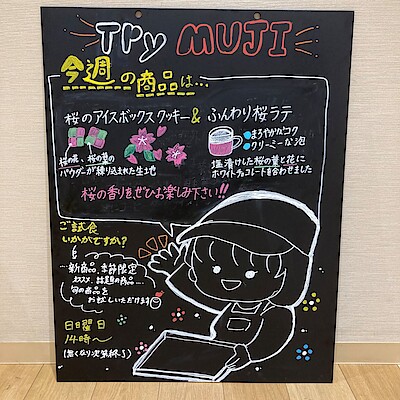 TRy MUJI
今週の商品は...
桜のアイスボックスクッキー & ふんわり桜ラテ
まろやかなコク
クリーミーな泡
桜の花、桜の葉の
パウダーが練り込まれた生地
塩漬けした桜の葉と花に
ホワイトチョコレートを合わせました
桜の香りをぜひお楽しみ下さい!!
ご試食
いかがですか?
...新商品、季節限定
オススメ、話題の商品...
旬の商品を
お試しいただけます
日曜日
14時〜
(無くなり次第終了)